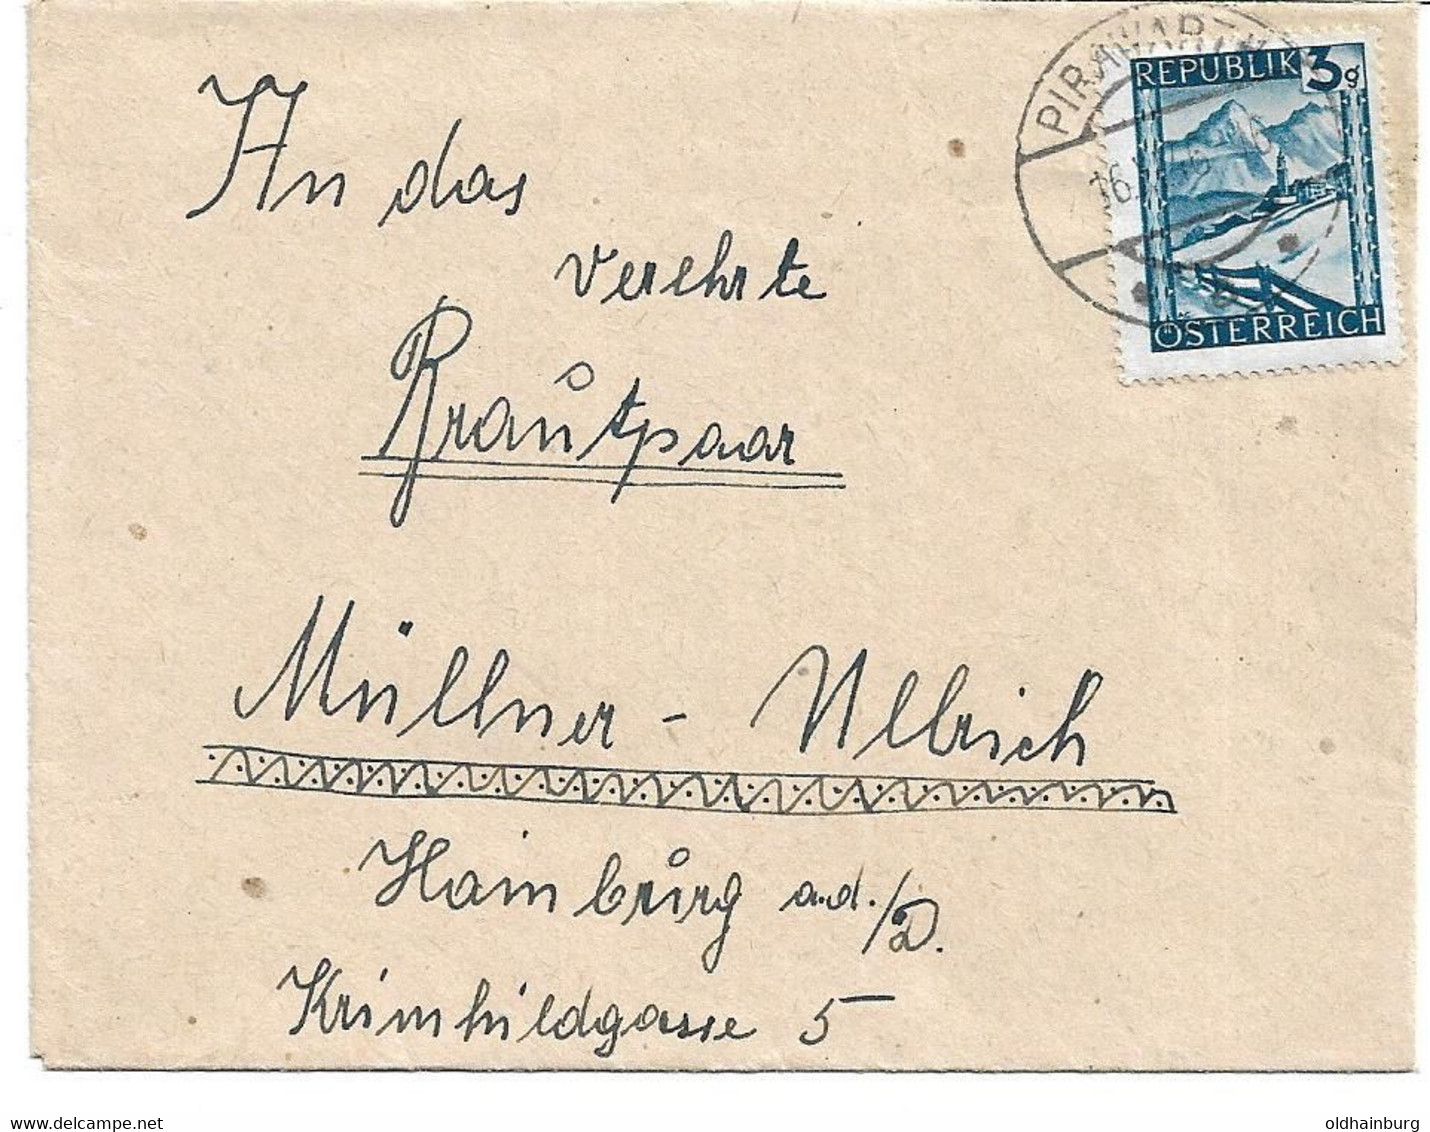 PIRAWARTH
REPUBLIK 3g
ÖSTERREICH
b
An das
verehrte
Brautpaar
Müllner - Ullrich
Hainburg a.d./D.
Krimhildgasse 5
delcampe.net
oldhainburg